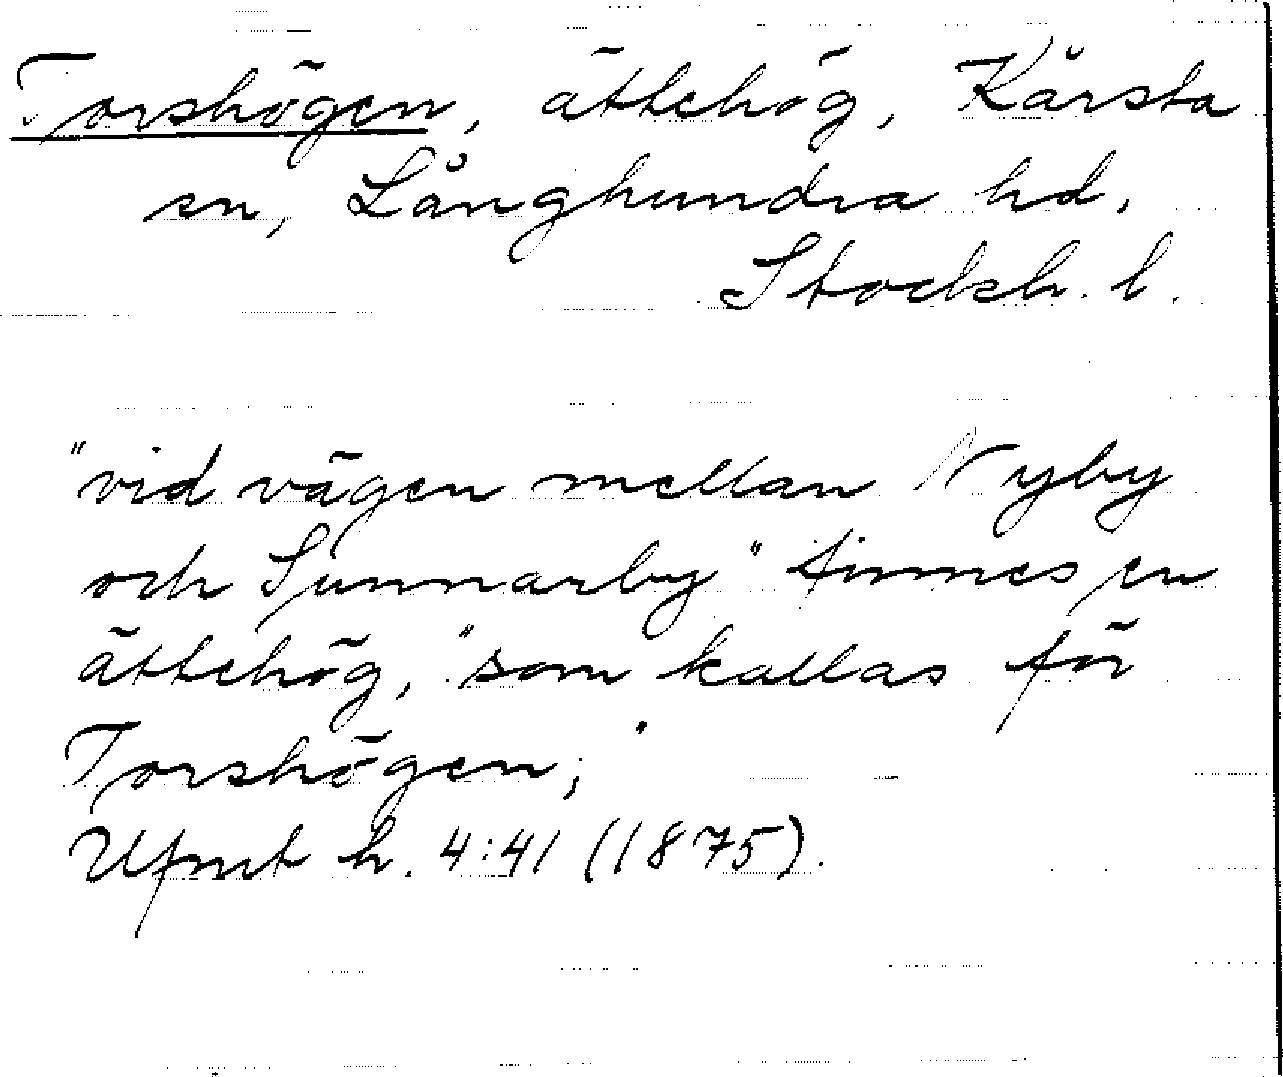 Torshögen, ättehög, Kårsta
sn, Långhundra hd,
Stockh. l.
"vid vägen mellan Nyby
och Sunnarby" finnes en
ättehög, "som kallas för
Torshögen;"
Ufmt h. 4:41 (1875).